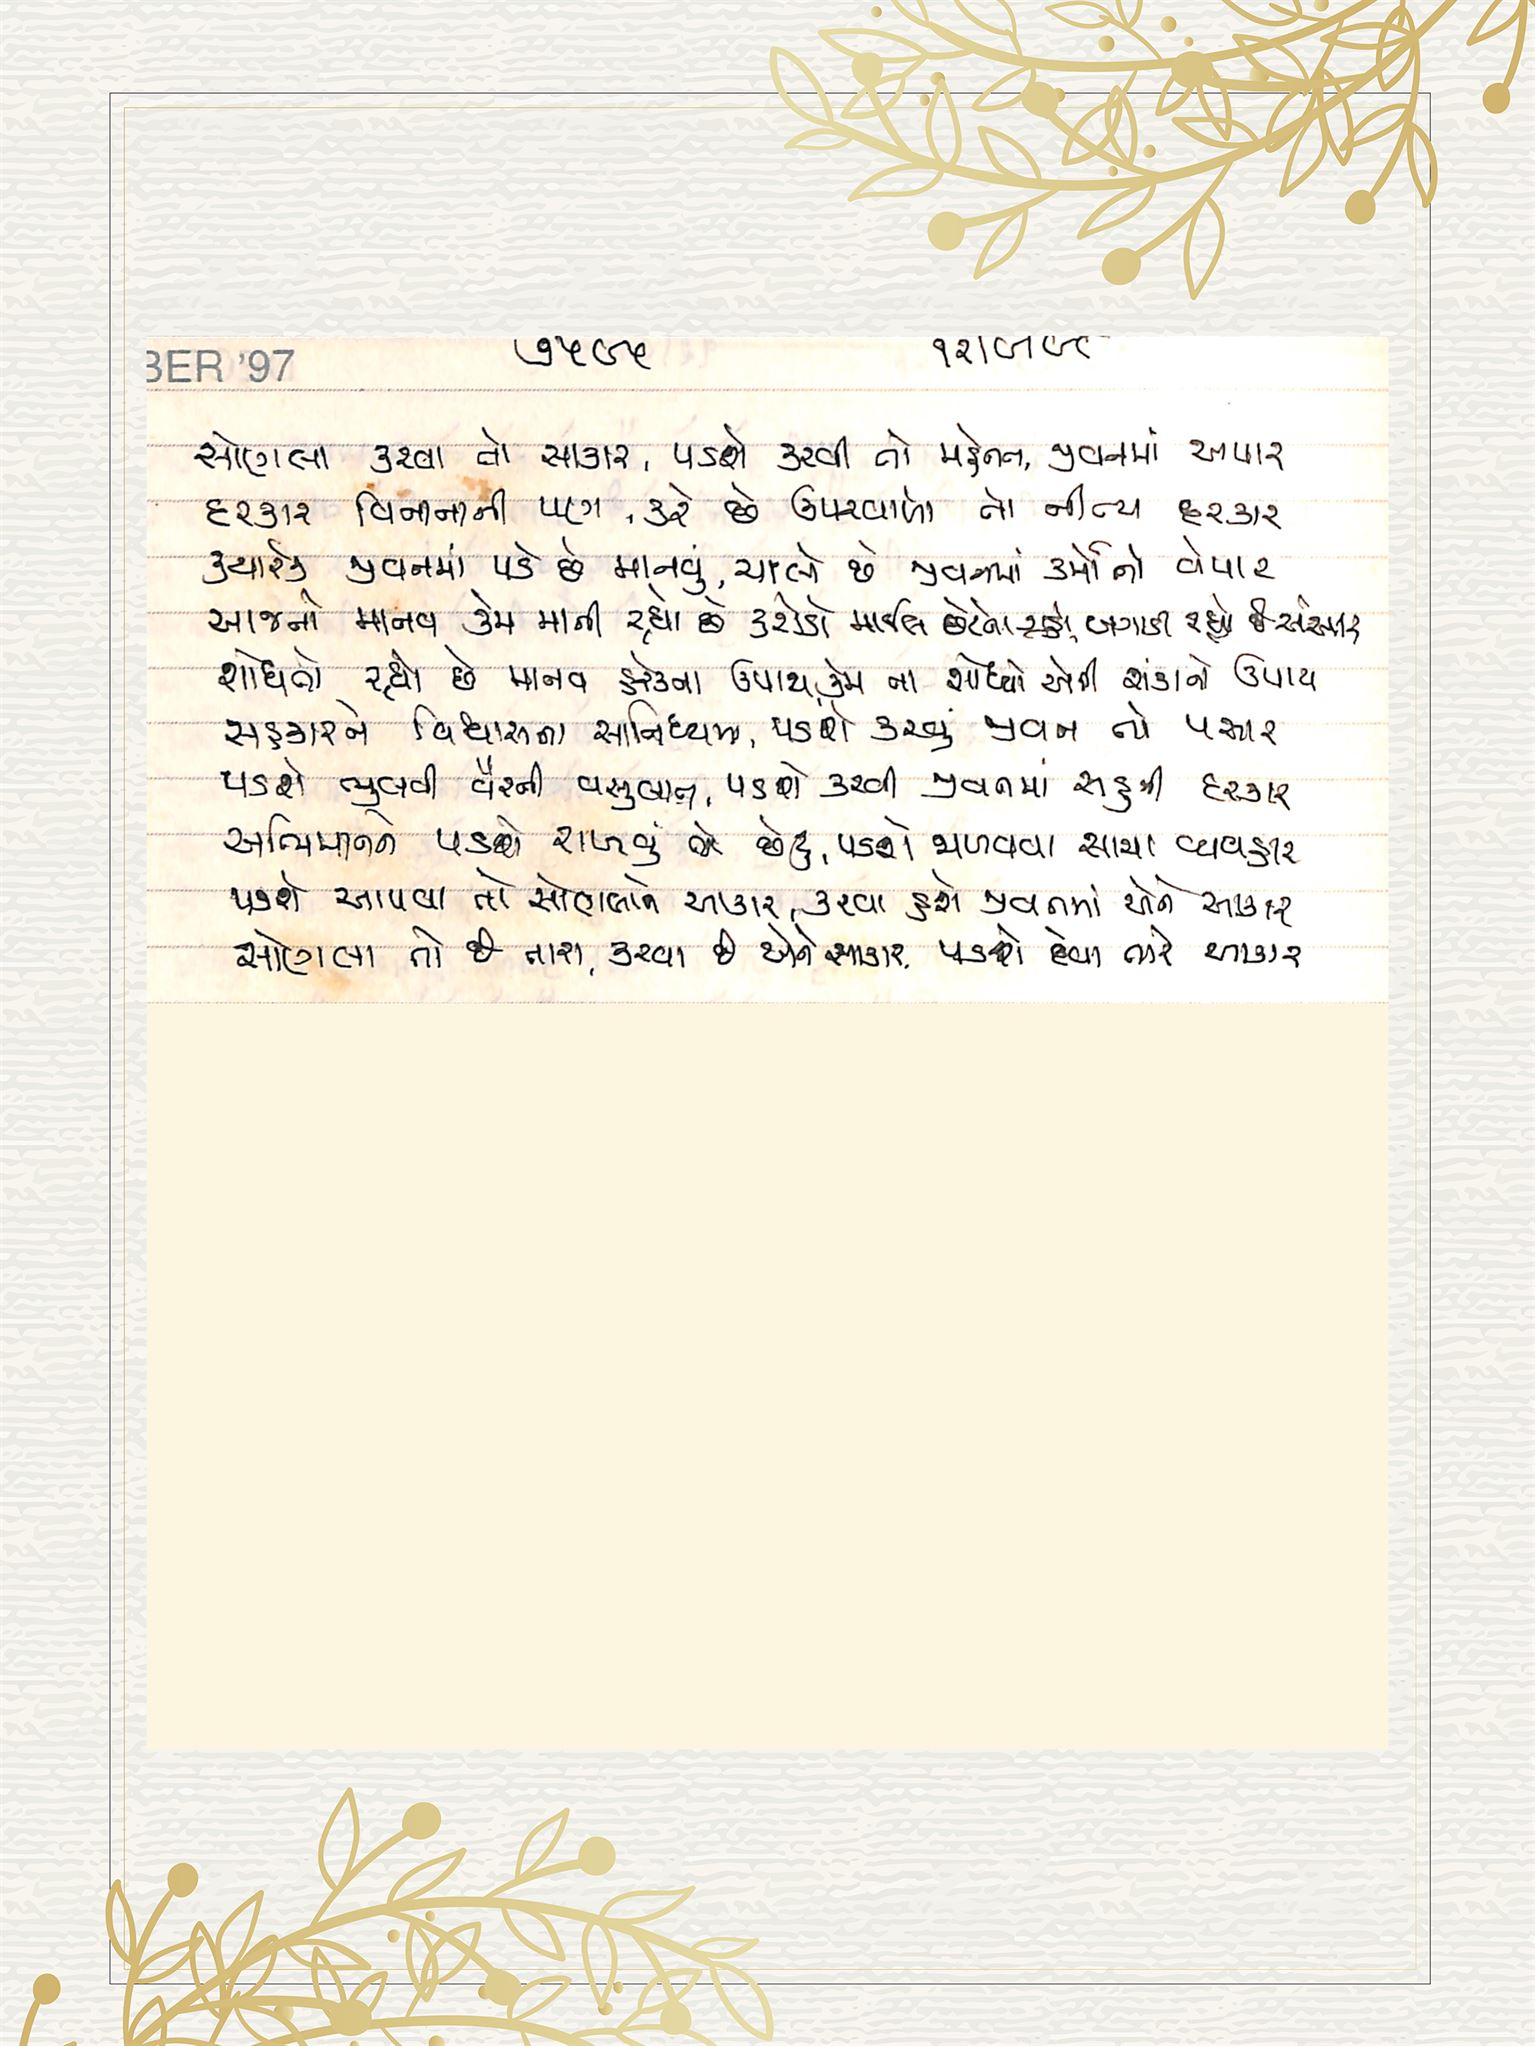 BER '97
૭૫૯૫
સોણલા કરવા તો સાકાર, પડશે કરવી તો મહેનત, જીવનમાં અપાર
દરકાર વિનાનાની પણ, કરે છે ઉપરવાળો તો નીત્ય દરકાર
ક્યારેક જીવનમાં પડે છે માનવું, ચાલે છે જીવનમાં કર્મોનો વેપાર
આજનો માનવ કેમ માની રહ્યો છે કરોડો માઈલ છેટેના ગ્રહો, બગાડી રહ્યો છે સંસાર
શોધતો રહ્યો છે માનવ હરેકના ઉપાય, કેમ ના શોધ્યો એની શંકાનો ઉપાય
સહકારને વિશ્વાસના સાનિધ્યમાં, પડશે કરવું જીવન તો પસાર
પડશે ભુલવી વૈરની વસુલાત, પડશે કરવી જીવનમાં સહુની દરકાર
અભિમાનને પડશે રાખવું છેટું, પડશે જાળવવા સાચા વ્યવહાર
પડશે આપવા તો સોણલાને આકાર, કરવા હશે જીવનમાં એને સાકાર
સોણલા તો છે તારા, કરવા છે એને સાકાર, પડશે દેવા તારે આકાર